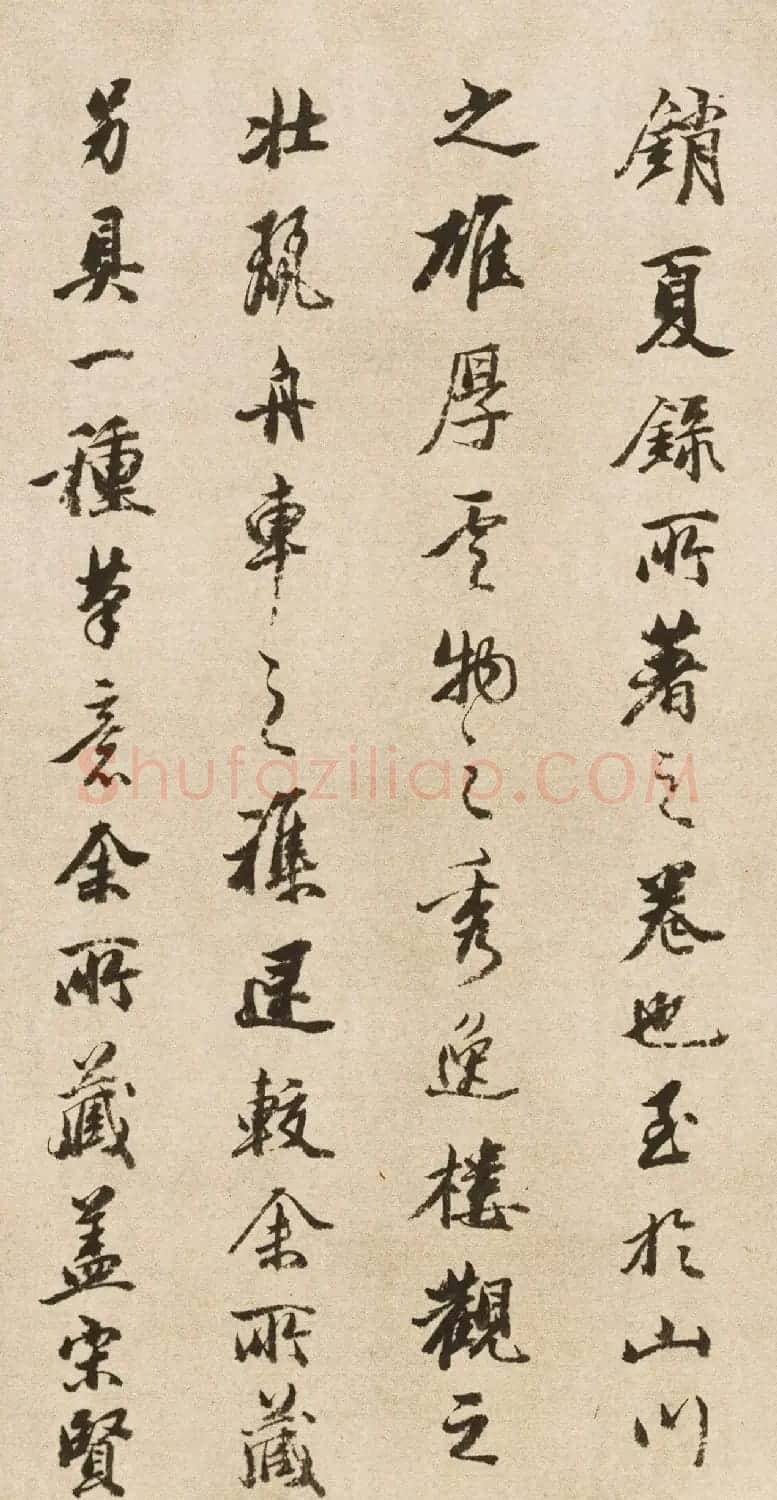 銷夏録所著之卷也至於山川
之雄厚雲物之秀逸樓觀之
壯麗舟車之穠遲較余所藏
另具一種筆意余所藏蓋宋賢
Shufaziliao.COM